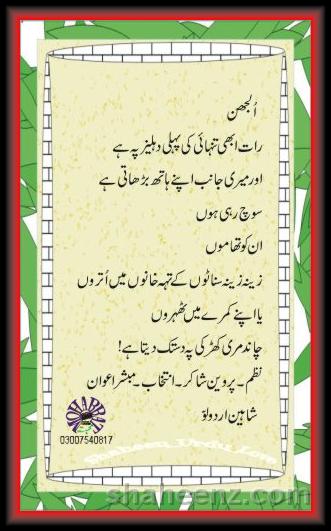 اُلجھن
رات ابھی تنہائی کی پہلی دہلیز پہ ہے
اور میری جانب اپنے ہاتھ بڑھاتی ہے
سوچ رہی ہوں
ان کو تھاموں
زینہ زینہ سناٹوں کے تہہ خانوں میں اُتروں
یا اپنے کمرے میں ٹھہروں
چاند مری کھڑکی پہ دستک دیتا ہے!
نظم۔ پروین شاکر۔ انتخاب۔ مبشراعوان
شاہین اردو لوَ
03007540817
Shaheen Urdu Love
shaheenz.com